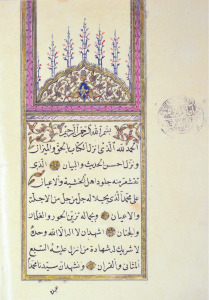 بسم الله الرحمن الرحيم
الحمد لله الذي نزل الكتاب بالحق والميزان
ونزل احسن الحديث والبيان الذي
تقشعر منه جلود اهل الخشية والاعيان
على محمد الذي بجلاله جل من جل من الاجلة
والاعيان وبجماله تزين الحور والغلمان
والجنان اشهد ان لا اله الا الله وحده
لا شريك له شهادة من انزل عليه السبع
المثاني والقرآن ونشهد ان سيدنا محمدا